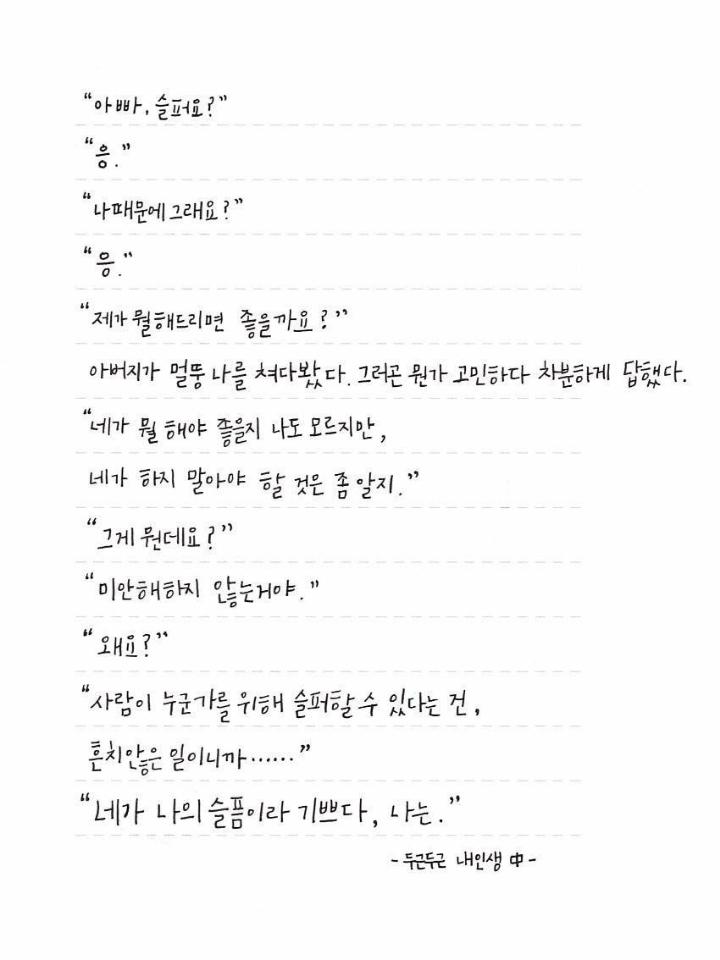 “아빠, 슬퍼요?”
“응.”
“나때문에그래요?”
“응.”
“제가 뭘해드리면 좋을까요?”
아버지가 멀뚱 나를 쳐다봤다. 그러곤 뭔가 고민하다 차분하게 답했다.
“네가 뭘 해야 좋을지 나도 모르지만,
네가 하지 말아야 할 것은 좀 알지.”
“그게 뭔데요?”
“미안해하지 않는거야.”
“왜요?”
“사람이 누군가를 위해 슬퍼할 수 있다는 건,
흔치않은 일이니까……”
“네가 나의 슬픔이라 기쁘다, 나는.”
- 두근두근 내인생 中 -